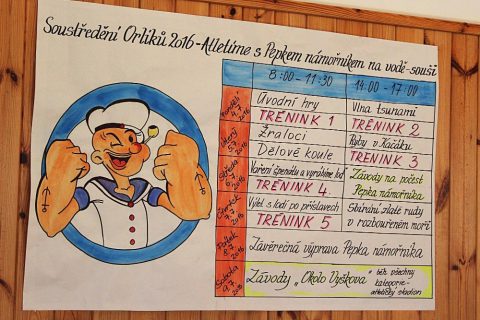 Soustředění Orlíků 2016 - Atletíme s Pepkem námořníkem na vodě-souši
8:00 - 11:30 14:00 - 17:00
Pondělí 4.7. 2016
Úvodní hry
TRÉNINK 1
Vlna tsunami
TRÉNINK 2
Úterý 5.7. 2016
Žraloci
Dělové koule
Ryby v Kačáku
TRÉNINK 3
Středa 6.7. 2016
Vaření špenátu a vyrábíme loď
TRÉNINK 4
Závody na počest
Pepka námořníka
Čtvrtek 7.7. 2016
Výlet s lodí po příslavech
TRÉNINK 5
Sbírání zlaté rudy
v rozbouřeném moři
Pátek 8.7. 2016
Závěrečná výprava Pepka námořníka
Sobota 9.7. 2016
Závody „Okolo Vyškova" běh všechny
kategorie-
atletický stadion